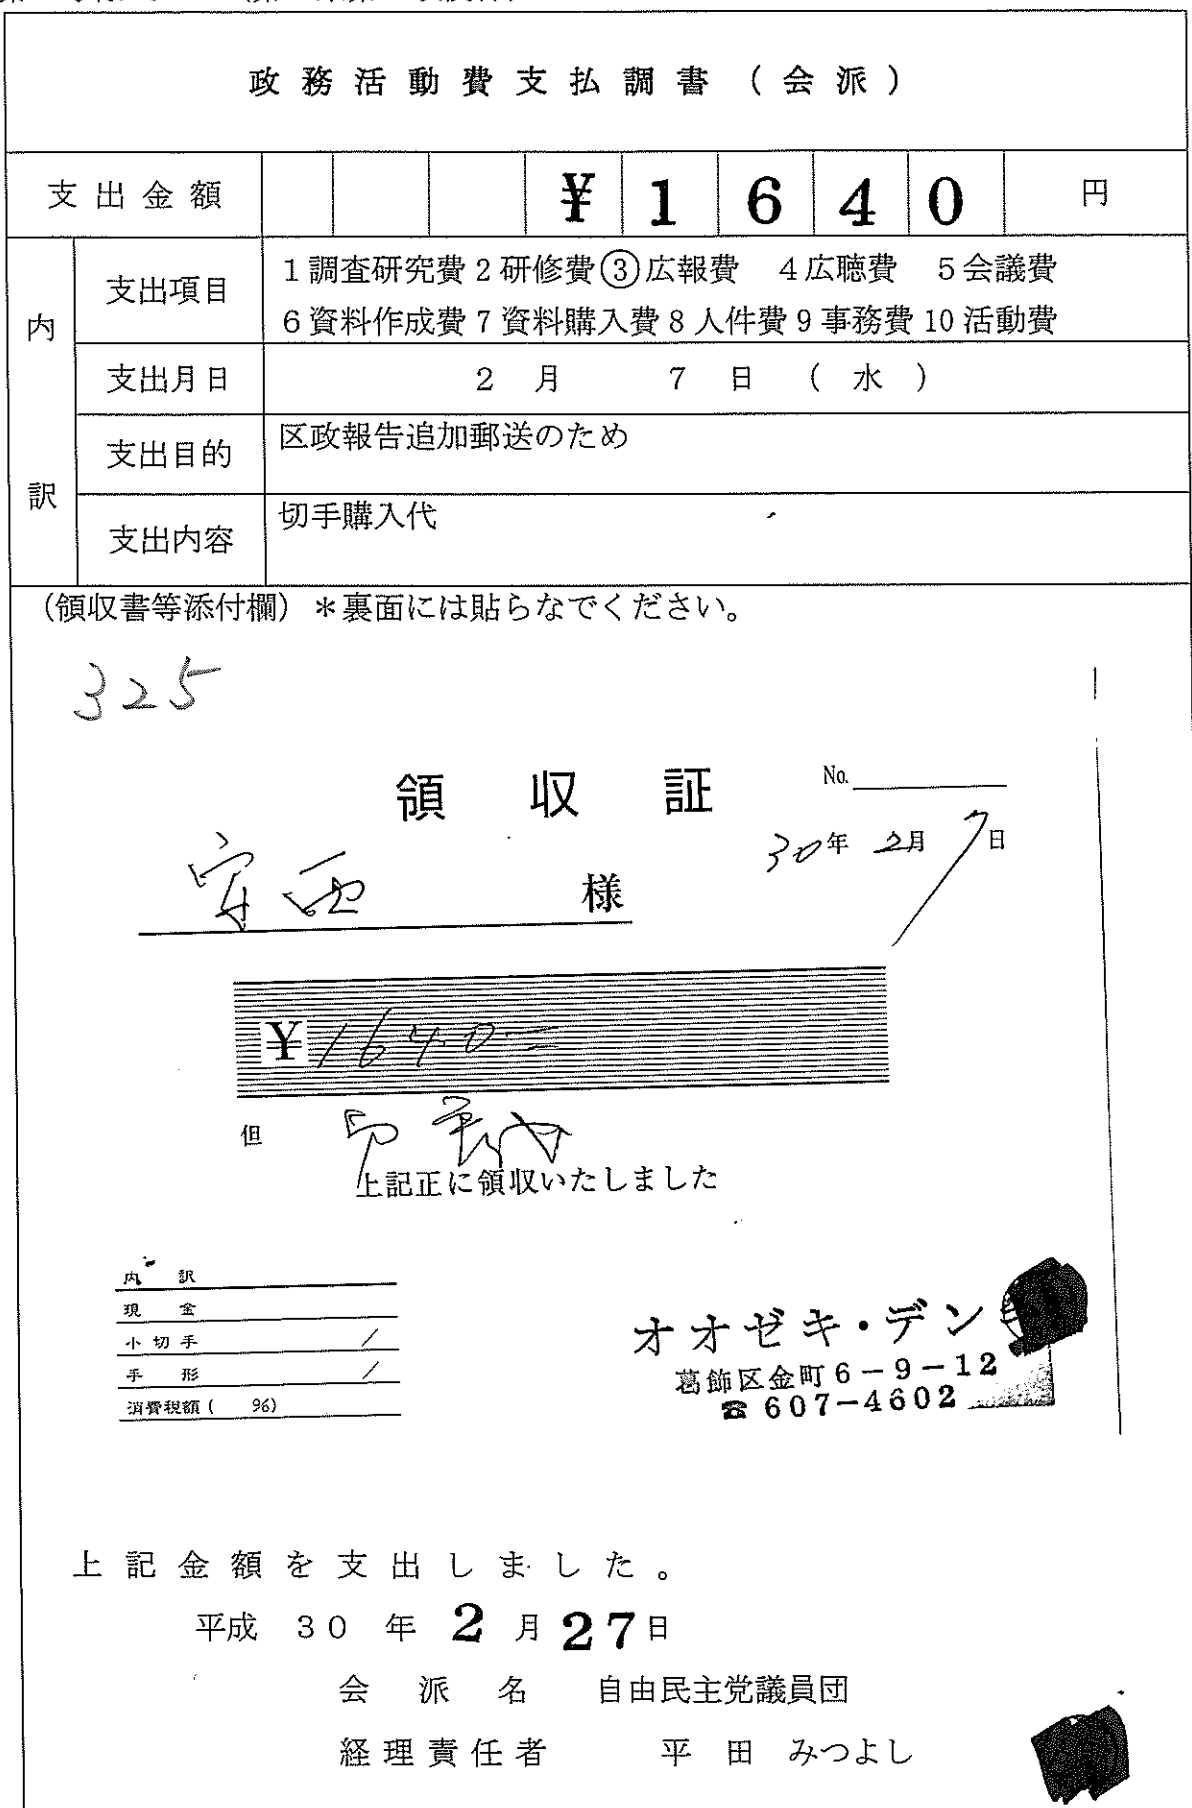 政務活動費支払調書（会派）
支出金額 ¥1640 円
内訳
支出項目 1調査研究費 2研修費 ③広報費 4広聴費 5会議費
6資料作成費 7資料購入費 8人件費 9事務費 10活動費
支出月日 2月 7日（水）
支出目的 区政報告追加郵送のため
支出内容 切手購入代
（領収書等添付欄）＊裏面には貼らなでください。
325
領収証 No.
30年 2月 7日
様
¥1640-
但
上記正に領収いたしました
内訳
現金
小切手 /
手形 /
消費税額( %)
オオゼキ・デン
葛飾区金町6-9-12
☎607-4602
上記金額を支出しました。
平成 30 年 2 月 27 日
会派名 自由民主党議員団
経理責任者 平田 みつよし